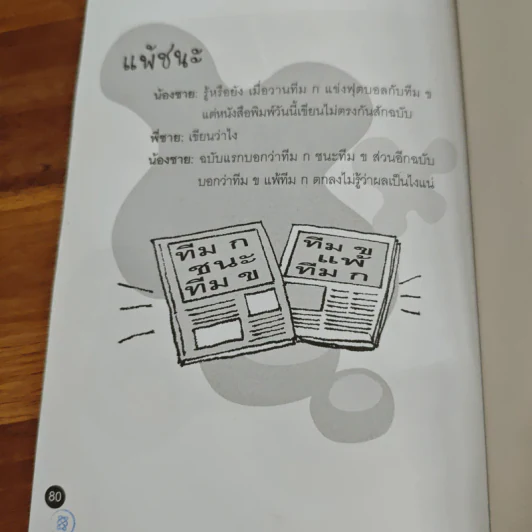 แพ้ชนะ
น้องชาย: รู้หรือยัง เมื่อวานทีม ก แข่งฟุตบอลกับทีม ข
แต่หนังสือพิมพ์วันนี้เขียนไม่ตรงกันสักฉบับ
พี่ชาย: เขียนว่าไง
น้องชาย: ฉบับแรกบอกว่าทีม ก ชนะทีม ข ส่วนอีกฉบับ
บอกว่าทีม ข แพ้ทีม ก ตกลงไม่รู้ว่าผลเป็นไงแน่
ทีม ก
ชนะ
ทีม ข
ทีม ข
แพ้
ทีม ก
80